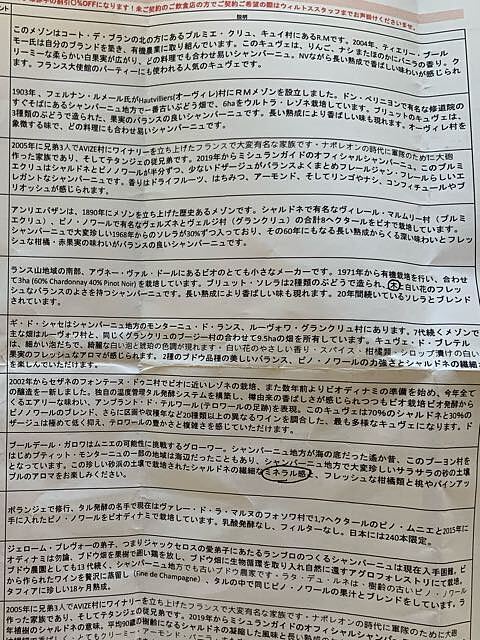 割引0%OFFになります！未ご契約のご飲食店の方でご契約ご希望の際はウィルトススタッフまでお声掛けくださいませ。
説明
このメゾンはコート・デ・ブランの北の方にあるプルミエ・クリュ、キュイ村にあるR.Mです。2004年、ティエリー・ブール
モー氏は自分のブランドを築き、有機農業に取り組んでいます。このキュヴェは、りんご、ナシ またほのかにバニラの香り。ク
リーミーな柔らかい白果実が広がり、どの料理でも合わせ易いシャンパーニュ。NVながら長い熟成で香ばしい味わいが感じられ
ます。フランス大使館のパーティーにも使われる人気のキュヴェです。
1903年、フェルナン・ルメール氏がHautvilliers(オーヴィレ)村にＲＭメゾンを設立しました。ドン・ペリニヨンで有名な修道院の
すぐそばにあるシャンパーニュ地方で一番古いぶどう畑で、6haをウルトラ・レゾネ栽培しています。ブリュットのキュヴェは、
3種類のぶどうで造られた、果実のバランスの良いシャンパーニュです。長い熟成により香ばしい味も現れます。オーヴィレ村を
象徴する味で、どの料理にも合わせ易いシャンパーニュです。
2005年に兄弟3人でAVIZE村にワイナリーを立ち上げたフランスで大変有名な家族です・ナポレオンの時代に軍隊のために大砲
作った家族であり、そしてテタンジェの従兄弟です。2019年からミシュランガイドのオフィシャルシャンパーニュ。このプルミ
エクリュはシャルドネとピノノワールが半分ずつ、少ないドザージュがバランスよくまとめフレールジャン・フレールらしいエ
レガントなシャンパーニュです。香りはドライフルーツ、はちみつ、アーモンド、そしてリンゴやナシ、コンフィチュールやブ
リオッシュが感じられます。
アンリエバザンは、1890年にメゾンを立ち上げた歴史あるメゾンです。シャルドネで有名なヴィレール・マルムリー村（プルミ
エクリュ）、ピノ・ノワールで有名なヴェルズネとヴェルジ村（グランクリュ）の合計8ヘクタールをビオで栽培しています。
シャンパーニュで大変珍しい1968年からのソレラが30%ずつ入っており、その60年にもなる長い熟成からくる深い味わいとフレッ
シュな柑橘・赤果実の味わいがバランスの良いシャンパーニュです。
ランス山地域の南部、アヴネー・ヴァル・ドールにあるビオのとても小さなメーカーです。1971年から有機栽培を行い、合わせ
て3ha (60% Chardonnay 40% Pinot Noir) を栽培しています。ブリュット・ソレラは2種類のぶどうで造られ、木と白い花のフレッ
シュなバランスのよさを持つシャンパーニュです。長い熟成により香ばしい味も現れます。20年間続いているソレラとブレンド
されています。
ギ・ド・シャセはシャンパーニュ地方のモンターニュ・ド・ランス、ルーヴォワ・グランクリュ村にあります。7代続くメゾンで
主な畑はルーヴォワ村と、同じくグランクリュのブージー村の合わせて9.5haの畑を所有しています。キュヴェ・ド・ブレテル
は、細かい泡だちで、綺麗な白い泡と琥珀の色調が現れます・白い花のやさしい香り・スパイス・柑橘類・シロップ漬けの白い
果実のフレッシュなアロマが感じられます。2種のブドウ品種の美しいバランス、ピノ・ノワールの力強さとシャルドネの繊細
を楽しんでいただけます。
2002年からセザネのフォンテーヌ・ドゥニ村でビオに近いレゾネの栽培、また数年前よりビオディナミの準備を始め、今年全て
の醸造を一新しました。独自の温度管理タル発酵システムを構築し、樽由来の香ばしさが感じられつつもビオ栽培ビオ発酵から
くるエアリーな味わい。アンプランド・ド・テルワール (テロワールの足跡)を表現。このキュヴェは70%のシャルドネと30%の
ピノノワールのブレンド、さらに区画や収穫年など20種類以上の異なるワインを調合した、最も多様なキュヴェになります。ド
ザージュは極めて低く抑え、テロワールの豊かさと複雑さを感じていただけます。
ブールデール・ガロワはムニエの可能性に挑戦するグローワー。シャンパーニュ地方が海の底だった遥か昔、このプーヨン村を
はじめプティット・モンターニュの一部の地域は海辺だったこともあり、シャンパーニュ地方で大変珍しいサラサラの砂の土壌
となっています。この珍しい砂浜の土壌で栽培されたシャルドネの繊細なミネラル感と、フレッシュな柑橘類と桃やパインアッ
プルのアロマをお楽しみください。
ボランジェで修行、タル発酵の名手で現在はヴァレー・ド・ラ・マルヌのフォソワ村で1,7ヘクタールのピノ・ムニエと2015年に
手に入れたピノ・ノワールをビオディナミで栽培しています。乳酸発酵なし、フィルターなし。日本には240本限定。
ジェローム・プレヴォーの弟子、つまりジャックセロスの愛弟子にあたるランブロのつくるシャンパーニュは現在入手困難。ビ
オディナミは勿論、ブドウ畑を果樹で囲い鶏を放し、ブドウ畑に生物循環を取り入れ自然に還すアグロフォレストリにて栽培。
ブドウ農園としても13代続く、シャンパーニュ地方でも古いブドウ農家です・ラタ・デュ・ルネは：樹齢の古いピノ・ノワル
から作られたワインを贅沢に蒸留し (Fine de Champagne) 、タルの中で同じピノ・ノワールの果汁とをブレンドをしています。ラ
タフィアに珍しい18ヶ月熟成。
2005年に兄弟3人でAVIZE村にワイナリーを立ち上げたフランスで大変有名な家族です・ナポレオンの時代に軍隊のために大砲
作った家族であり、そしてテタンジェの従兄弟です。2019年からミシュランガイドのオフィシャルシャンパーニュ。